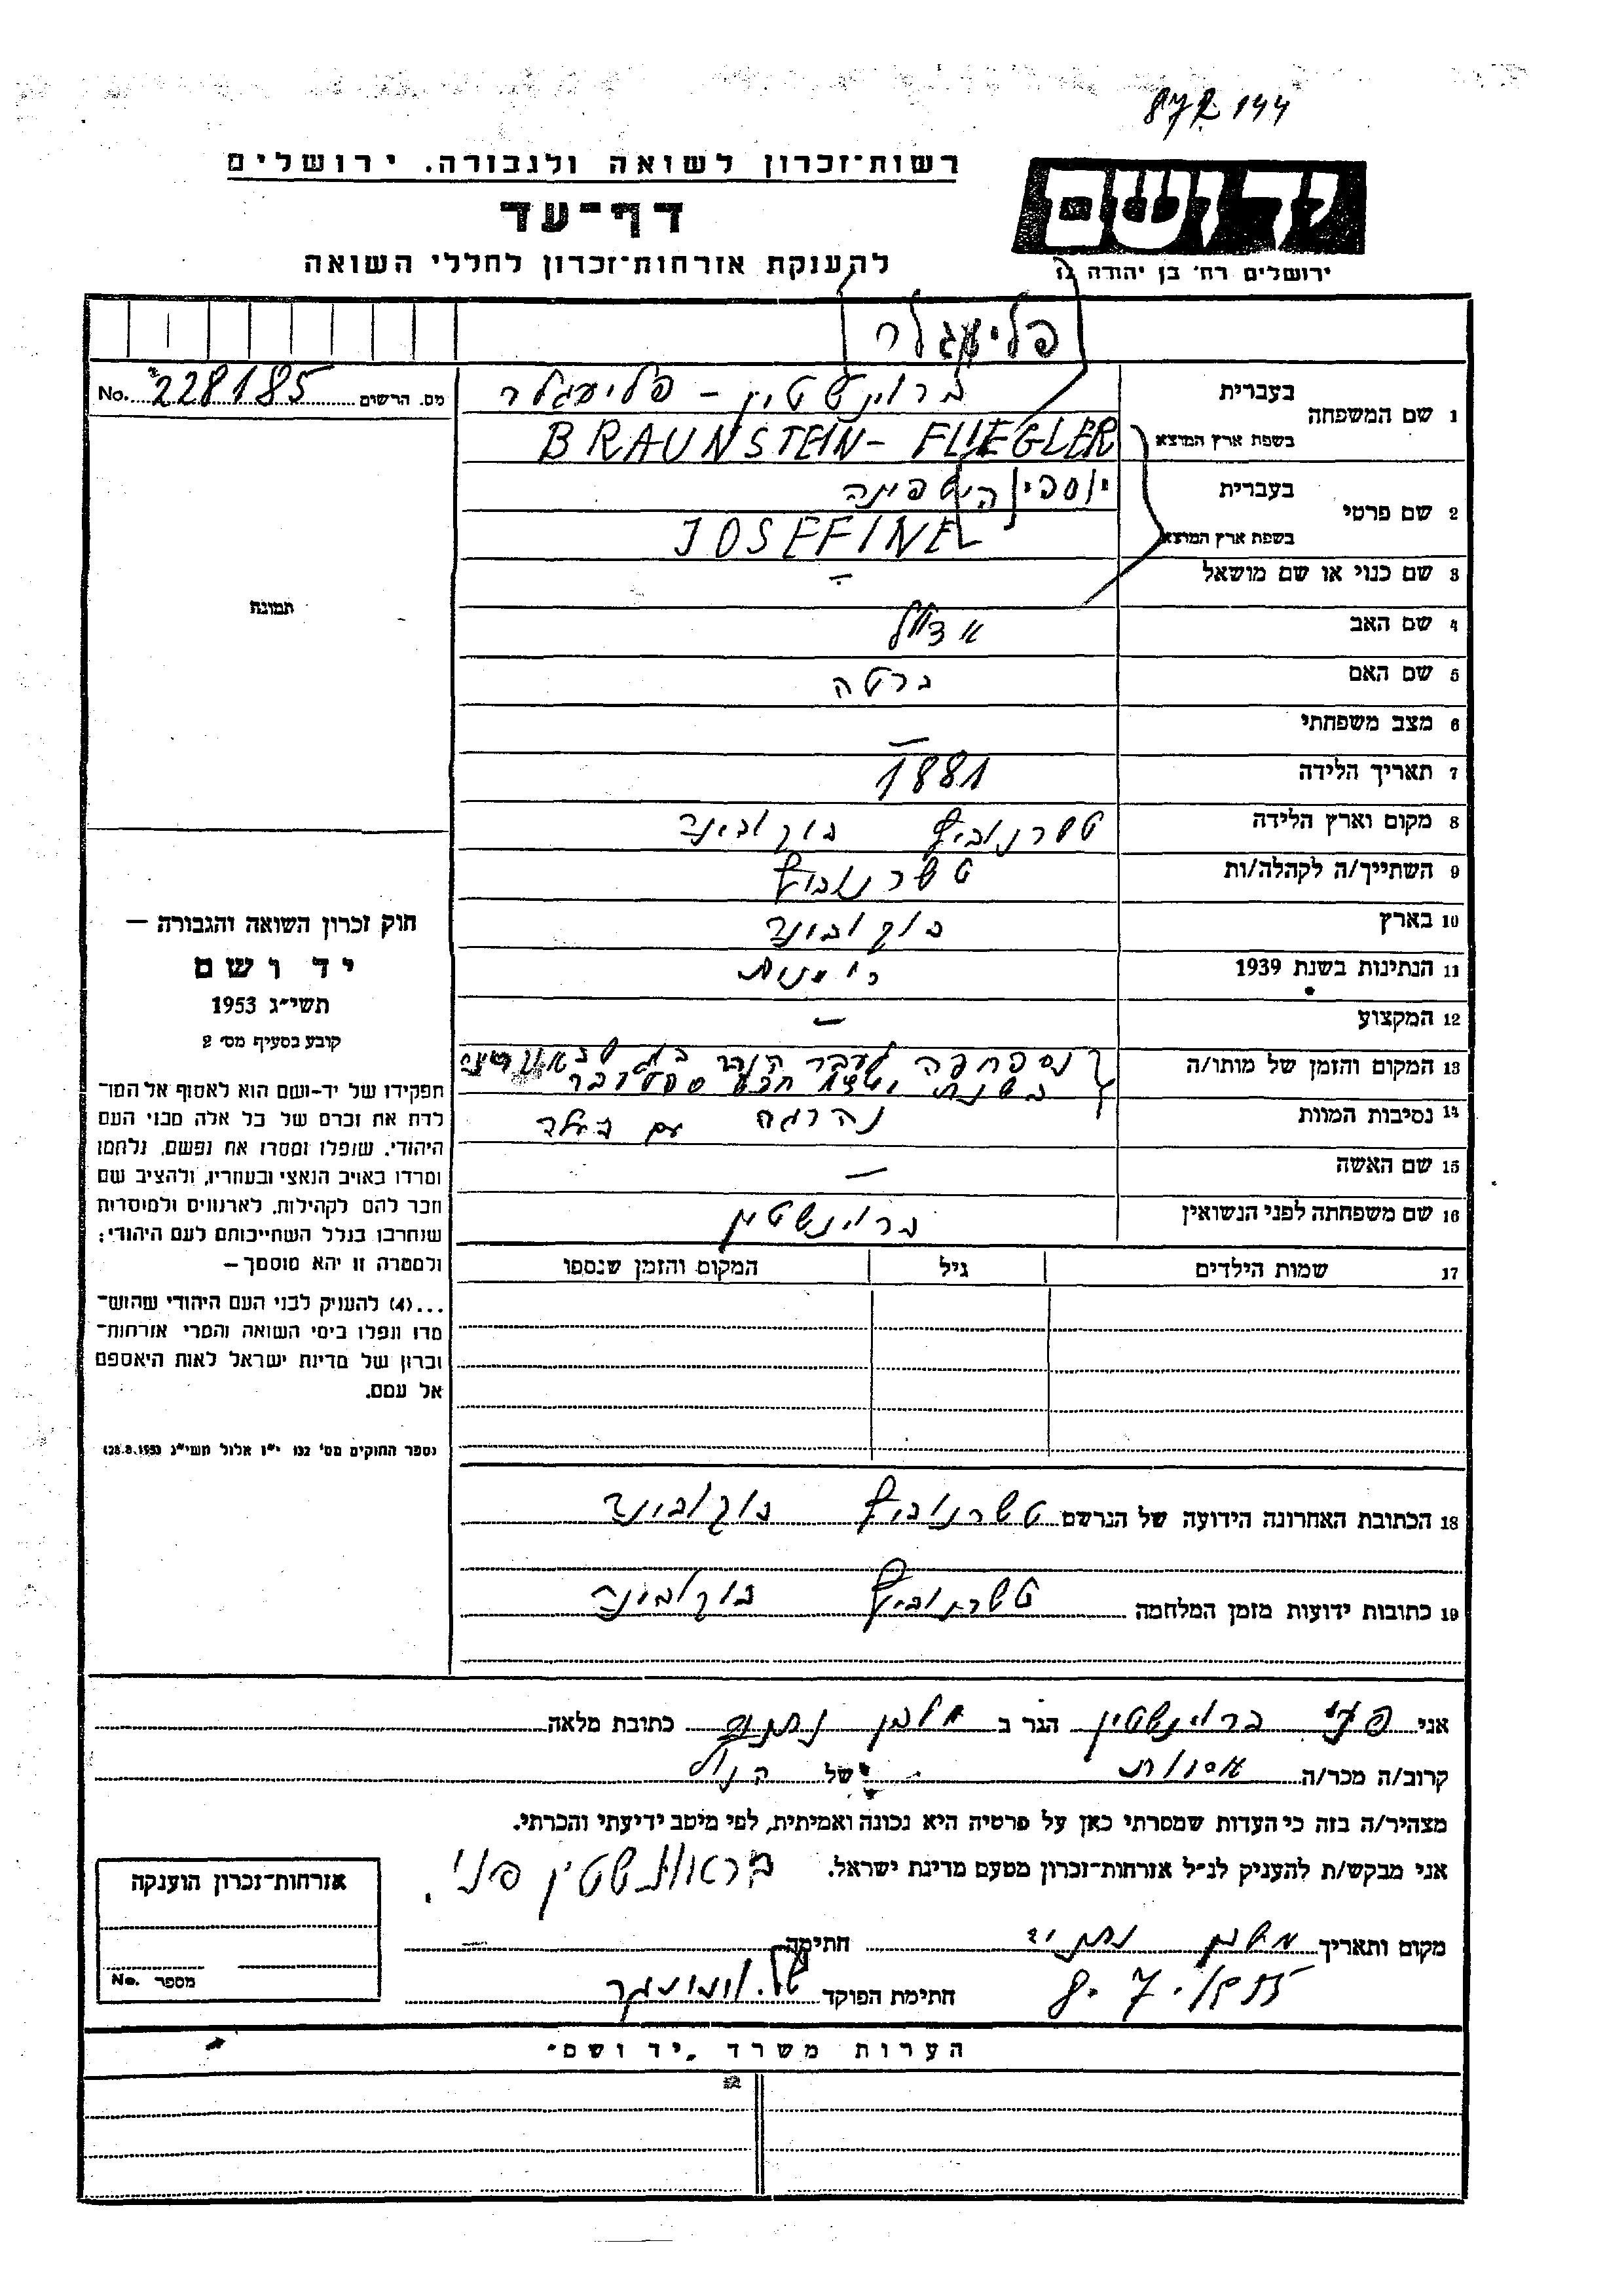 רשות־זכרון לשואה ולגבורה. ירושלים
דף־עד
להענקת אזרחות־זכרון לחללי השואה
יד ושם
ירושלים רח׳ בן יהודה
פליעגלר
מס. הרשום 228185 No.
1 שם המשפחה בעברית ברוינשטין - פליעגלר
בשפת ארץ המוצא BRAUNSTEIN - FLIEGLER
2 שם פרטי בעברית
בשפת ארץ המוצא JOSEFINE
3 שם כנוי או שם מושאל -
4 שם האב
5 שם האם ברטה
6 מצב משפחתי -
7 תאריך הלידה 1881
8 מקום וארץ הלידה טשרנוביץ בוקובינה
9 השתייך/ה לקהלה/ות טשרנוביץ
10 בארץ בוקובינה
11 הנתינות בשנת 1939 רומנית
12 המקצוע -
13 המקום והזמן של מותו/ה
14 נסיבות המוות נהרגה עם
15 שם האשה -
16 שם משפחתה לפני הנשואין ברוינשטין
17 שמות הילדים גיל המקום והזמן שנספו
תמונה
חוק זכרון השואה והגבורה —
יד ושם
תשי״ג 1953
קובע בסעיף מס׳ 2
תפקידו של יד-ושם הוא לאסוף אל המו־
לדת את זכרם של כל אלה מבני העם
היהודי, שנפלו ומסרו את נפשם, נלחמו
ומרדו באויב הנאצי ובעוזריו, ולהציב שם
וזכר להם לקהילות, לארגונים ולמוסדות
שנחרבו בגלל השתייכותם לעם היהודי;
ולמטרה זו יהא מוסמך —
...(4) להעניק לבני העם היהודי שהוש־
מדו ונפלו בימי השואה והמרי אזרחות־
זכרון של מדינת ישראל לאות היאספם
אל עמם.
(ספר החוקים מס׳ 132 י״ז אלול תשי״ג 28.8.1953)
18 הכתובת האחרונה הידועה של הנרשם טשרנוביץ בוקובינה
19 כתובות ידועות מזמן המלחמה טשרנוביץ בוקובינה
אני פני ברוינשטין הגר ב נתניה כתובת מלאה
קרוב/ה מכר/ה של הנ״ל
מצהיר/ה בזה כי העדות שמסרתי כאן על פרטיה היא נכונה ואמיתית, לפי מיטב ידיעתי והכרתי.
אני מבקש/ת להעניק לנ״ל אזרחות־זכרון מטעם מדינת ישראל. בראונשטין פני.
מקום ותאריך נתניה חתימה
8.7.1955 חתימת הפוקד
אזרחות־זכרון הוענקה
מספר No.
הערות משרד „יד ושם״